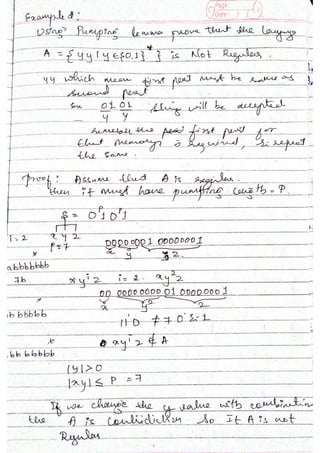 Page
Date
Example 2:
Using Pumping lemma prove that the language
A = {yy | y ∈ {0,1}* } is Not Regular.
yy which mean first part must be same as
second part
0101 string will be accepted
y y
remember the first part for
that memory is required, & repeat
the same.
proof: Assume that A is regular.
then it must have pumping length = P
S = 0ᴾ10ᴾ1
x y z
P = 7
00000001 00000001
x y z
i = 2
abbbbbbb
7b
xyⁱz i = 2. xy²z
00 0000 0000 01 00000001
x y² z
bbbbb
11 0 ≠ 7 0's & 1
xyⁱz ∉ A
bb bbbbb
|y| > 0
|xy| ≤ P = 7
If we change the y value with combination
the A is contradiction So It A is not
Regular